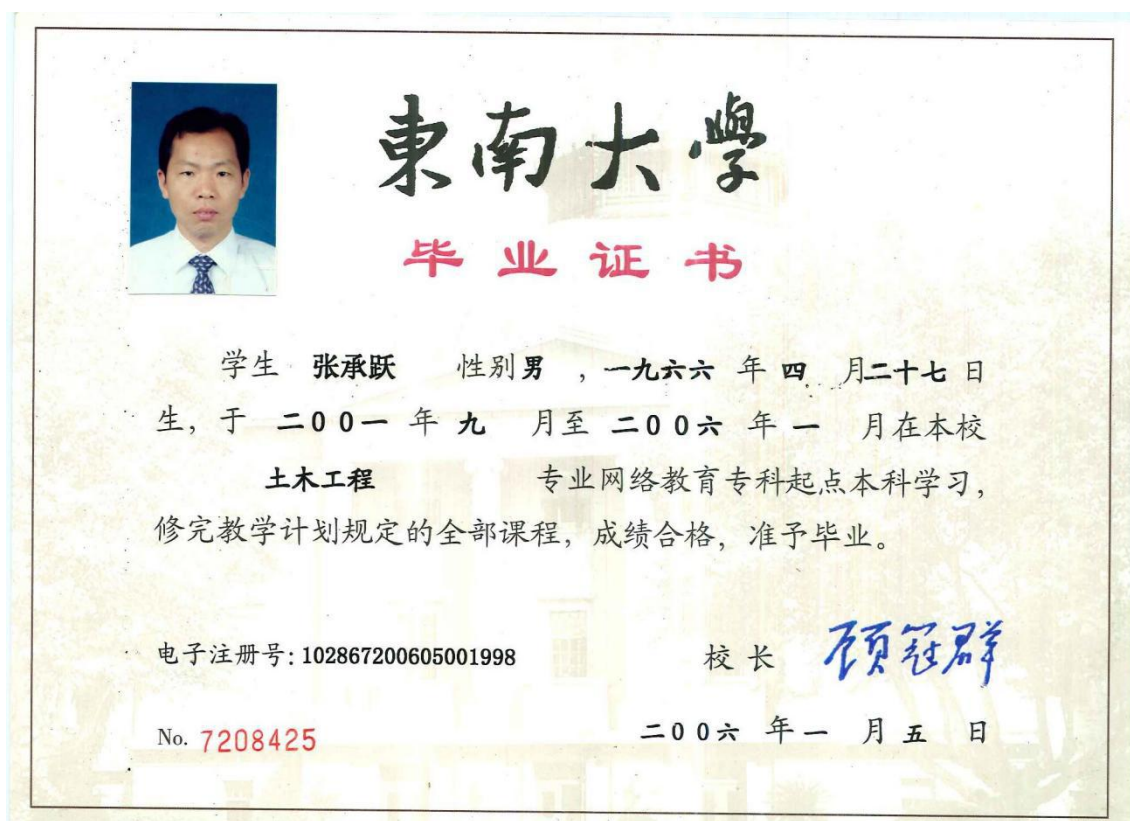 東南大學
毕业证书
学生 张承跃 性别男 ,一九六六 年 四 月二十七日
生, 于 二00一 年 九 月至 二00六 年 一 月在本校
土木工程 专业网络教育专科起点本科学习,
修完教学计划规定的全部课程, 成绩合格, 准予毕业。
电子注册号: 102867200605001998
校长 顾冠群
No. 7208425
二00六 年 一 月 五 日